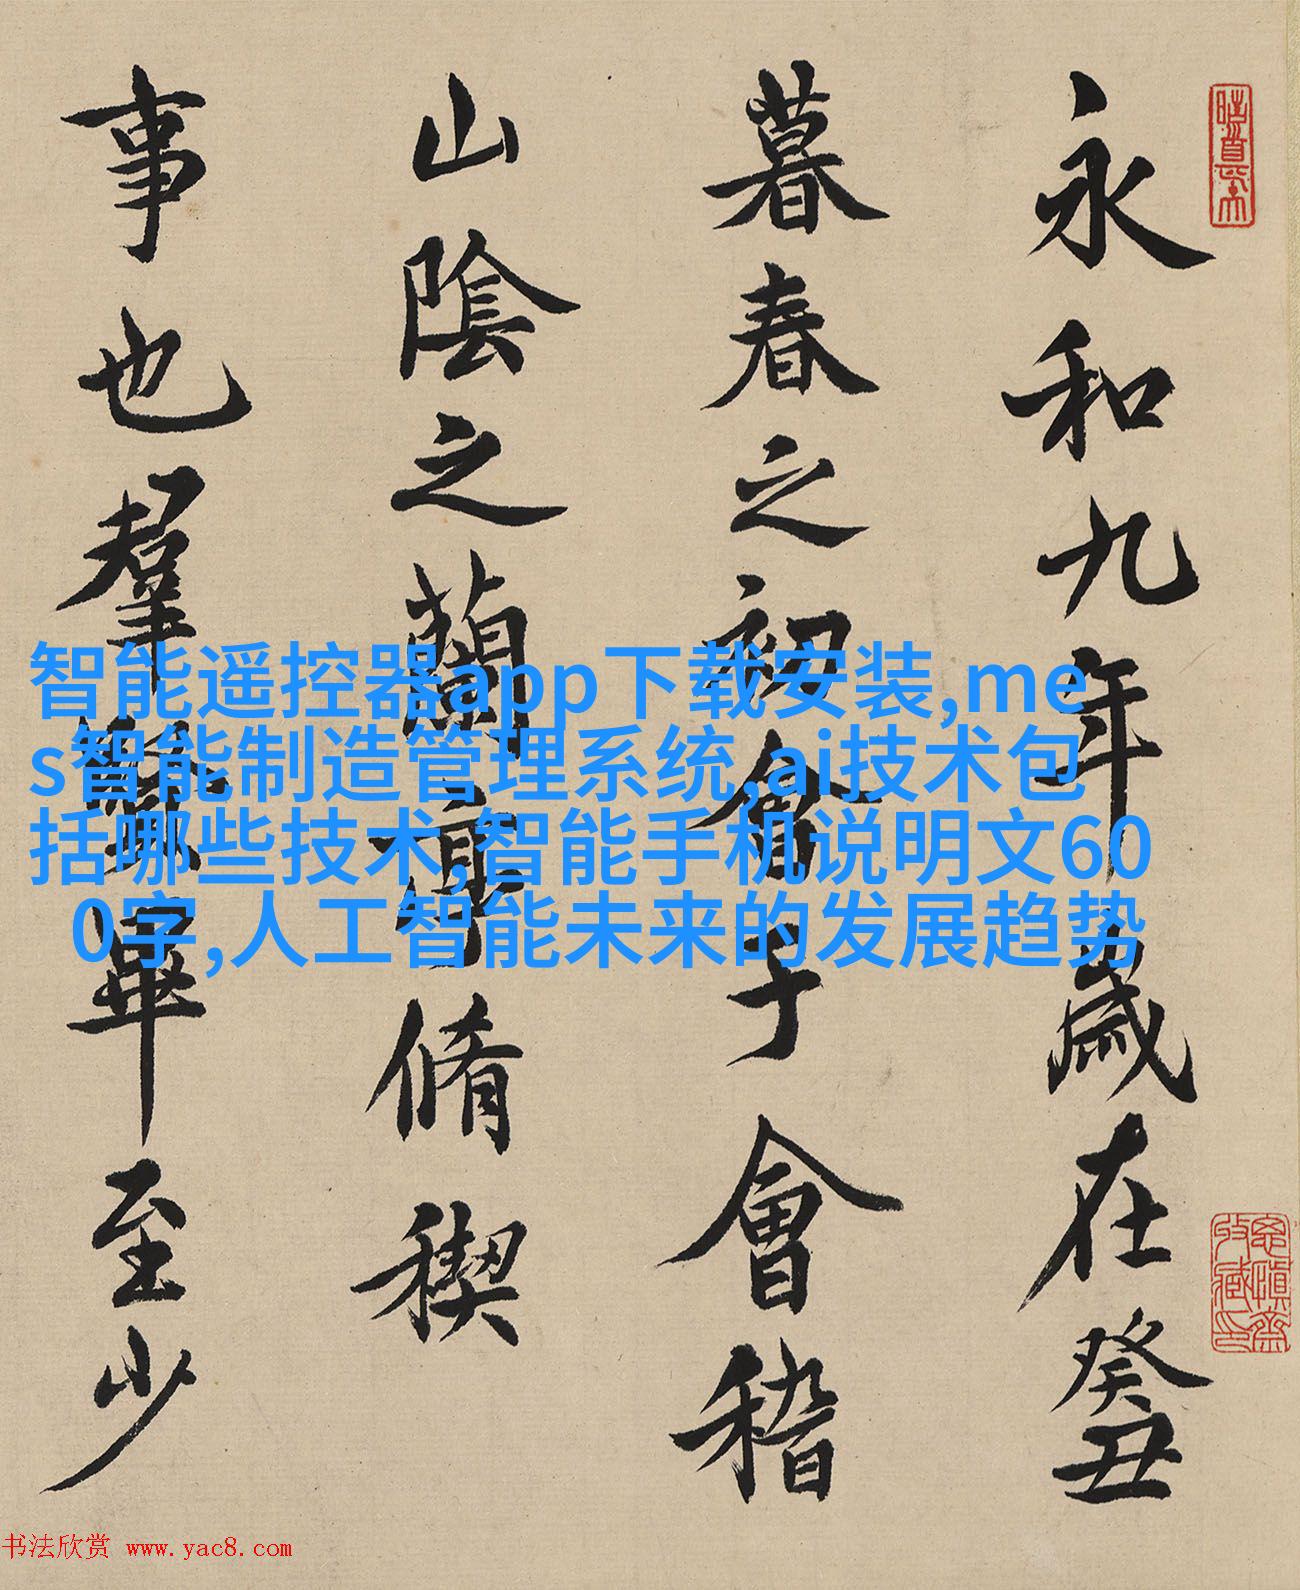 永和九年歲在癸丑
暮春之初會于會稽
山陰之蘭亭脩稧
事也羣賢畢至少
智能遥控器app下载安装,me
s智能制造管理系统,ai技术包
括哪些技术,智能手机说明文60
0字,人工智能未来的发展趋势
书法欣赏 www.yac8.com